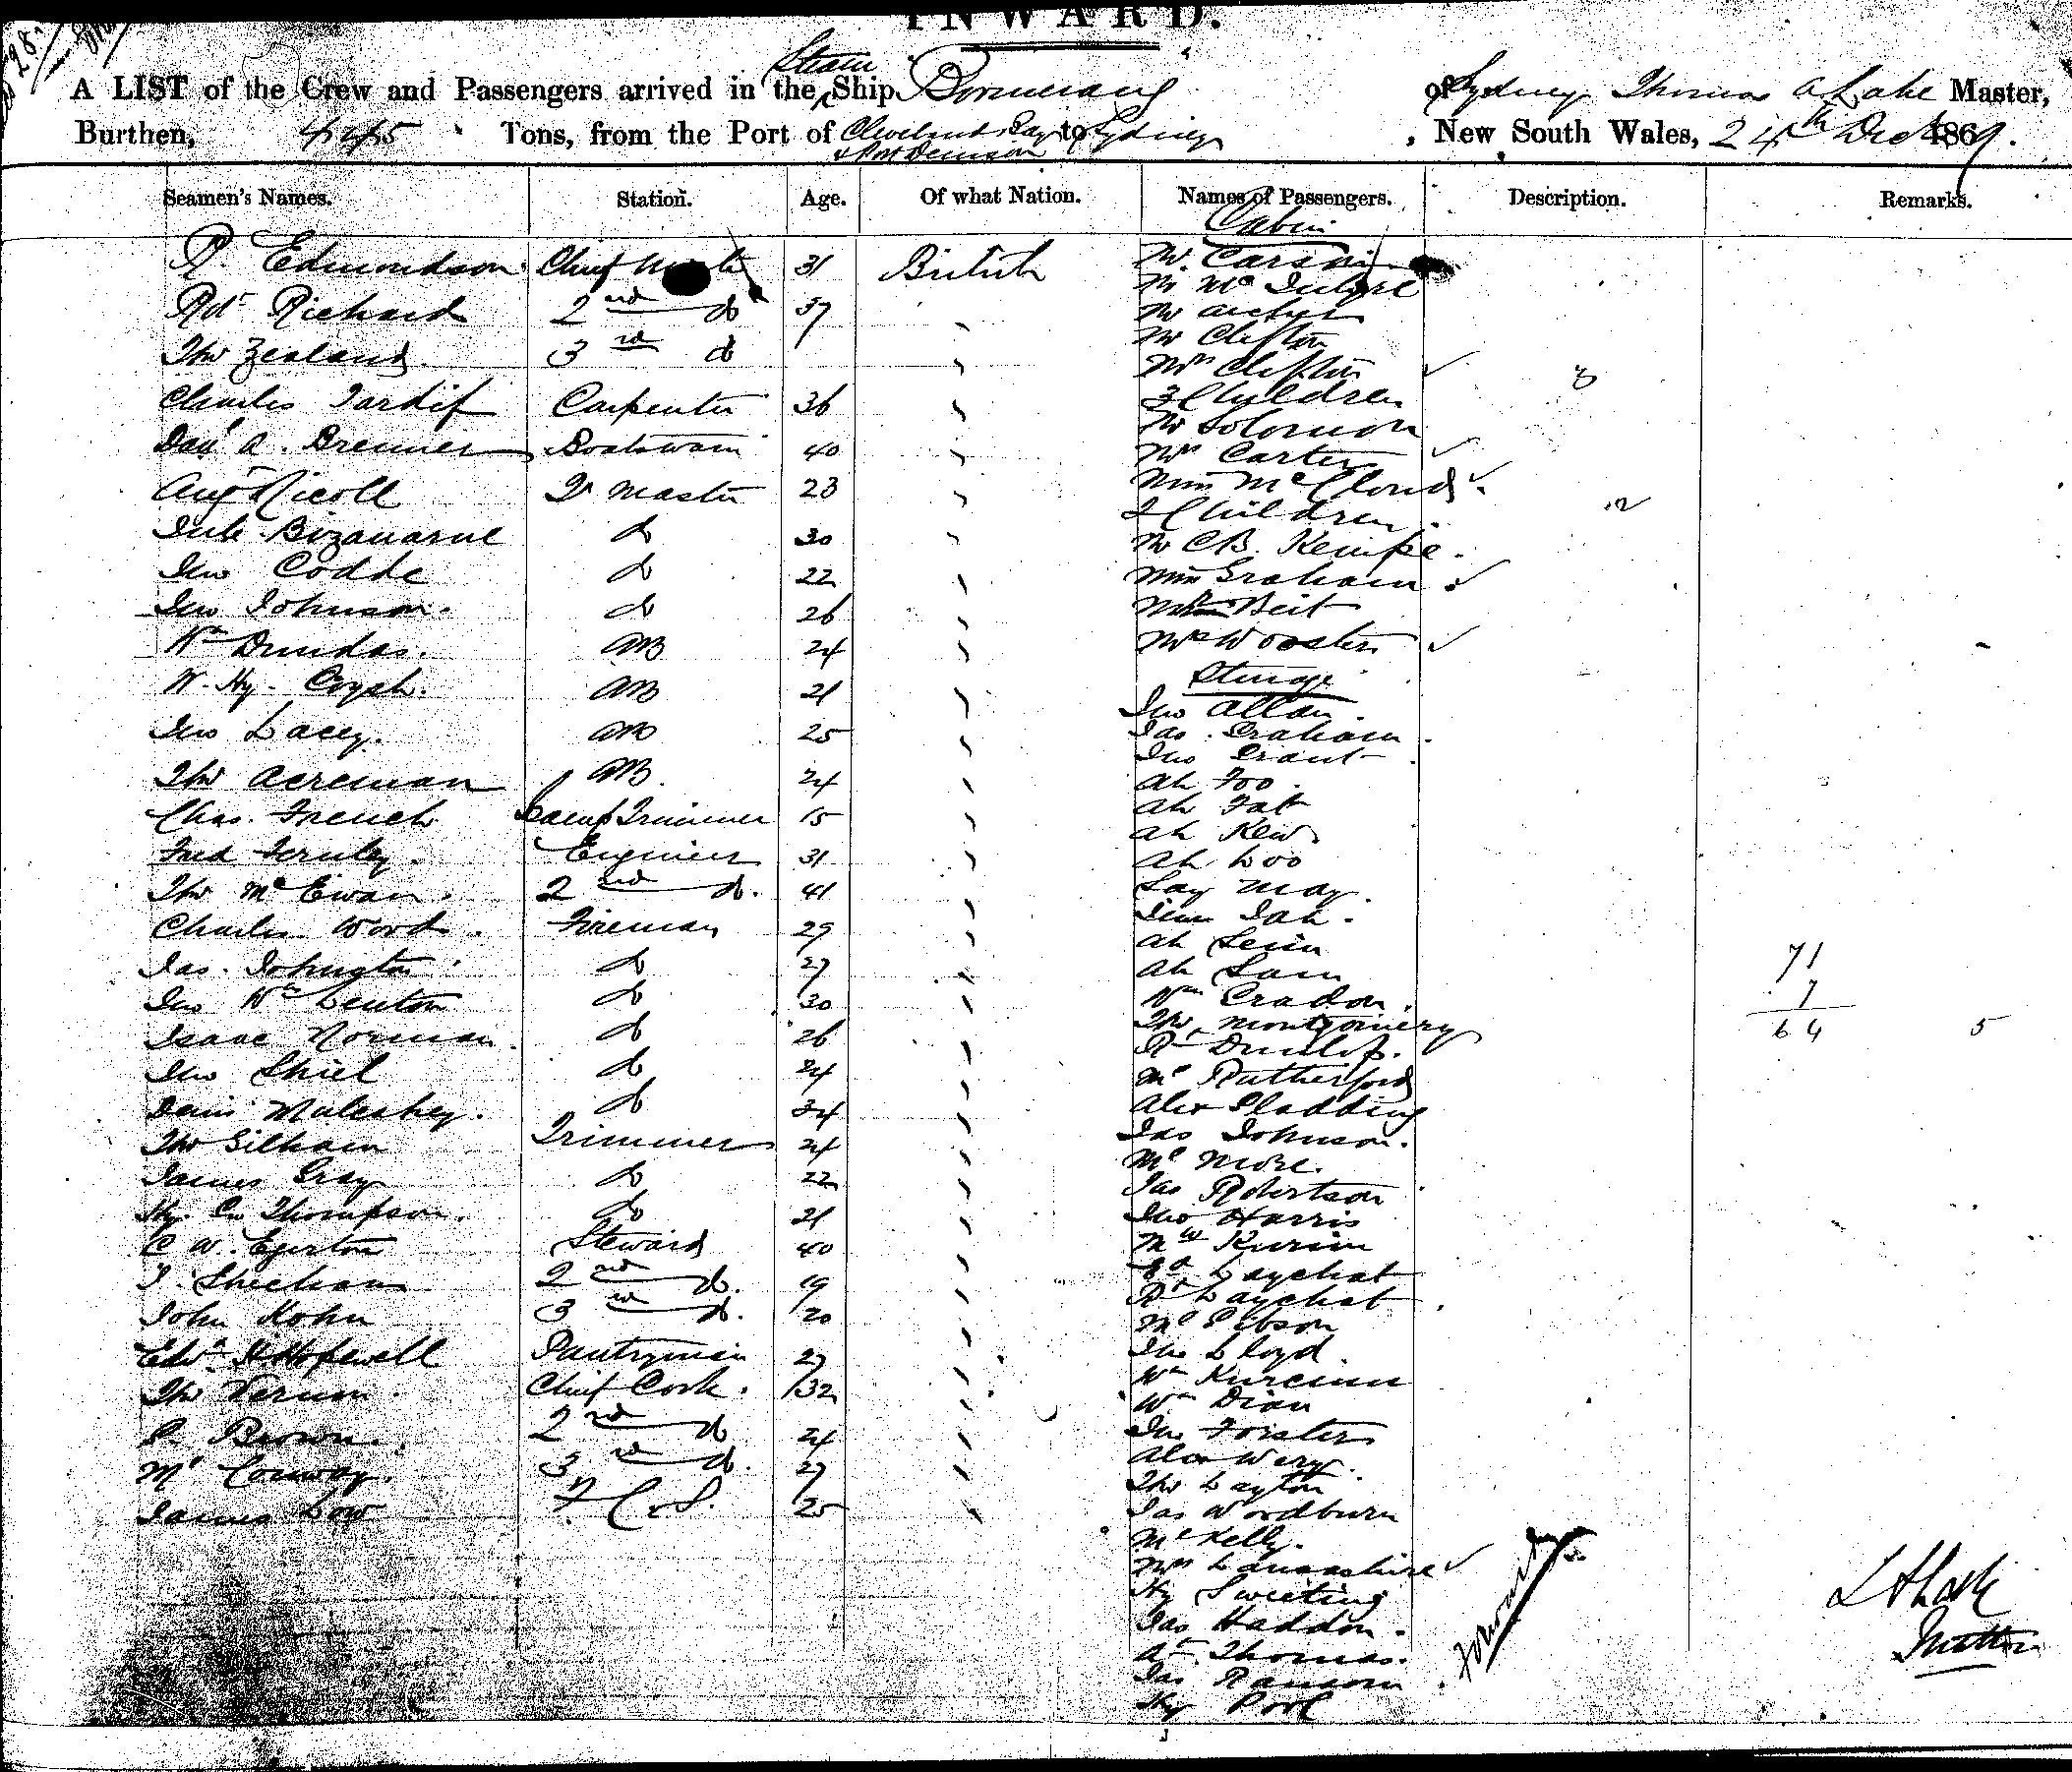 INWARD.
A LIST of the Crew and Passengers arrived in the Steam Ship Boomerang of Sydney Thomas A Lake Master,
Burthen, 445 Tons, from the Port of Cleveland Bay & Port Denison to Sydney, New South Wales, 24th Dec 1869.
Seamen's Names. Station. Age. Of what Nation. Names of Passengers. Description. Remarks.
Cabin
R. Edmondson Chief Mate 31 British
Rdt Richard 2nd do 37
Thos Zealand 3rd do
Charles Tardif Carpenter 36
Danl A. Brenner Boatswain 40
Augt Nicoll Qr Master 23
do 30
Jno Codde do 22
Jno Johnson do 26
Wm Dundas. AB 24
W. Hy. Coysh. AB 21
Jno Lacey. AB 25
Thos Acreman AB 24
Chas. French Lamp Trimmer 15
Fred Fernley. Engineer 31
Thos McEwan. 2nd do. 41
Charles Wood. Fireman 29
Jas. Johngton do 27
Jno Wm Lenton do 30
Isaac Norman. do 26
Jno Shiel do 24
Denis Mulcahey. do 34
Thos Gilham Trimmer 24
James Gray do 22
Hy. Thompson. do 21
C W. Egerton Steward 40
J. Sheehan 2nd do. 19
John Kohn 3rd do. 20
Edwd Hopewell Pantryman 27
Thos Vernon Chief Cook. 32
P. Brown. 2nd do 24
Ml Conway. 3rd do. 27
James Low 25
Mr
Mr McIntyre
Mr Archer
Mr Clifton
Mrs Clifton
3 Children 3
Mr Solomon
Mrs Carter
Miss McCloud
2 Children 2
Mr C B. Kempe.
Miss Graham
Beit
Mrs Wooster
Steerage
Jno Allan.
Jas. Graham.
Jno Grant
Ah Foo.
Ah Fat
Ah Kew
Ah Loo
Lay May.
Jim Jah.
Ah
Ah Sam
Wm Cradon.
Thos Montgomery
Rt Dunlop.
Rutherford
Alex Gladding
Jas Johnson.
More.
Jas Robertson
Jno Harris
Laychat
Rt Laychat
Gibson
Jno Lloyd.
Wm
Wm Dian
Jno Forster
Alex Wery.
Thos Layton
Jas Woodburn
Ml Kelly.
Mrs Lancashire
Hy Sweeting
Jas Haddon.
At Thomas.
Jas Ransom.
Hy Pool
71
7
64 5
Forward